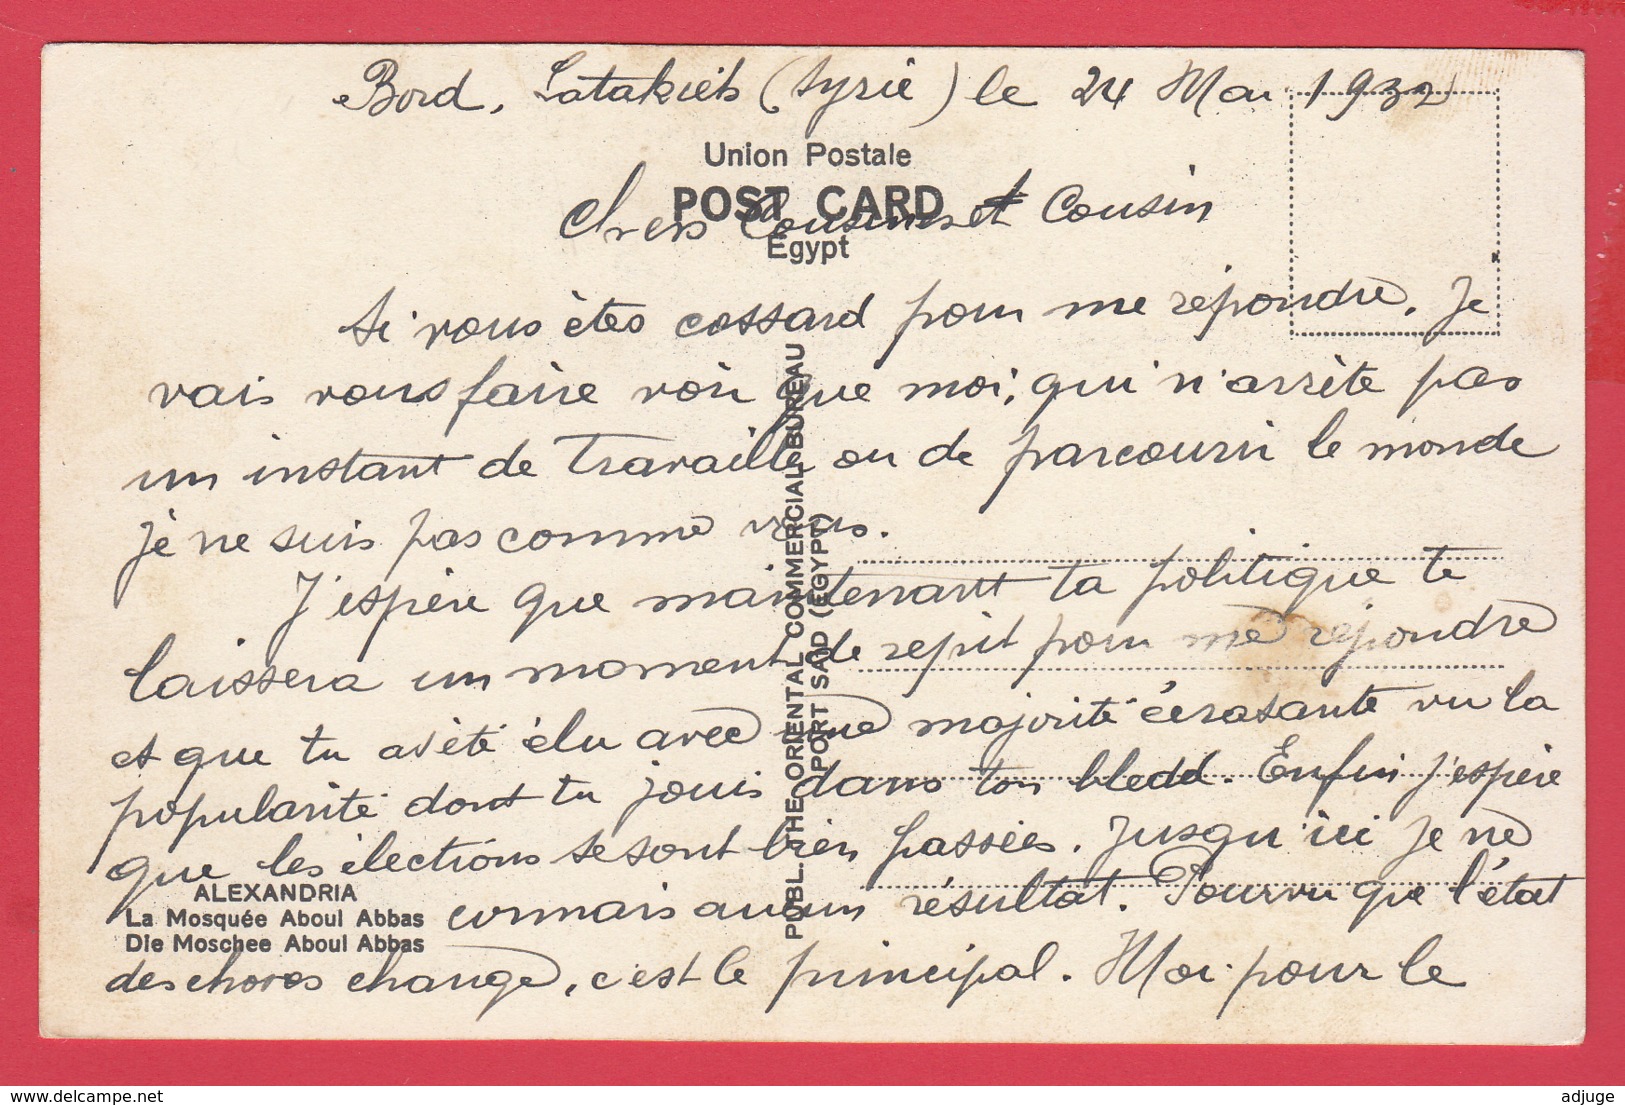 Bord, Latakieh (Syrie) le 24 Mai 1932
Union Postale
POST CARD
Egypt
Chers Cousines et Cousin
Si vous ètes cossard pour me répondre. Je
vais vous faire voir que moi, qui n'arrète pas
un instant de travaille ou de parcourir le monde
je ne suis pas comme vous.
J'espère que maintenant ta politique te
laissera un moment de repit pour me répondre
et que tu as été élu avec une majorité écrasante vu la
popularité dont tu jouis dans ton bledd. Enfin j'espère
que les élections se sont bien passées. Jusqu'ici je ne
connais aucun résultat. Pourvu que l'état
des choses change, c'est le principal. Moi pour le
ALEXANDRIA
La Mosquée Aboul Abbas
Die Moschee Aboul Abbas
PUBL. THE ORIENTAL COMMERCIAL BUREAU
PORT SAID (EGYPT)
delcampe.net
adjuge